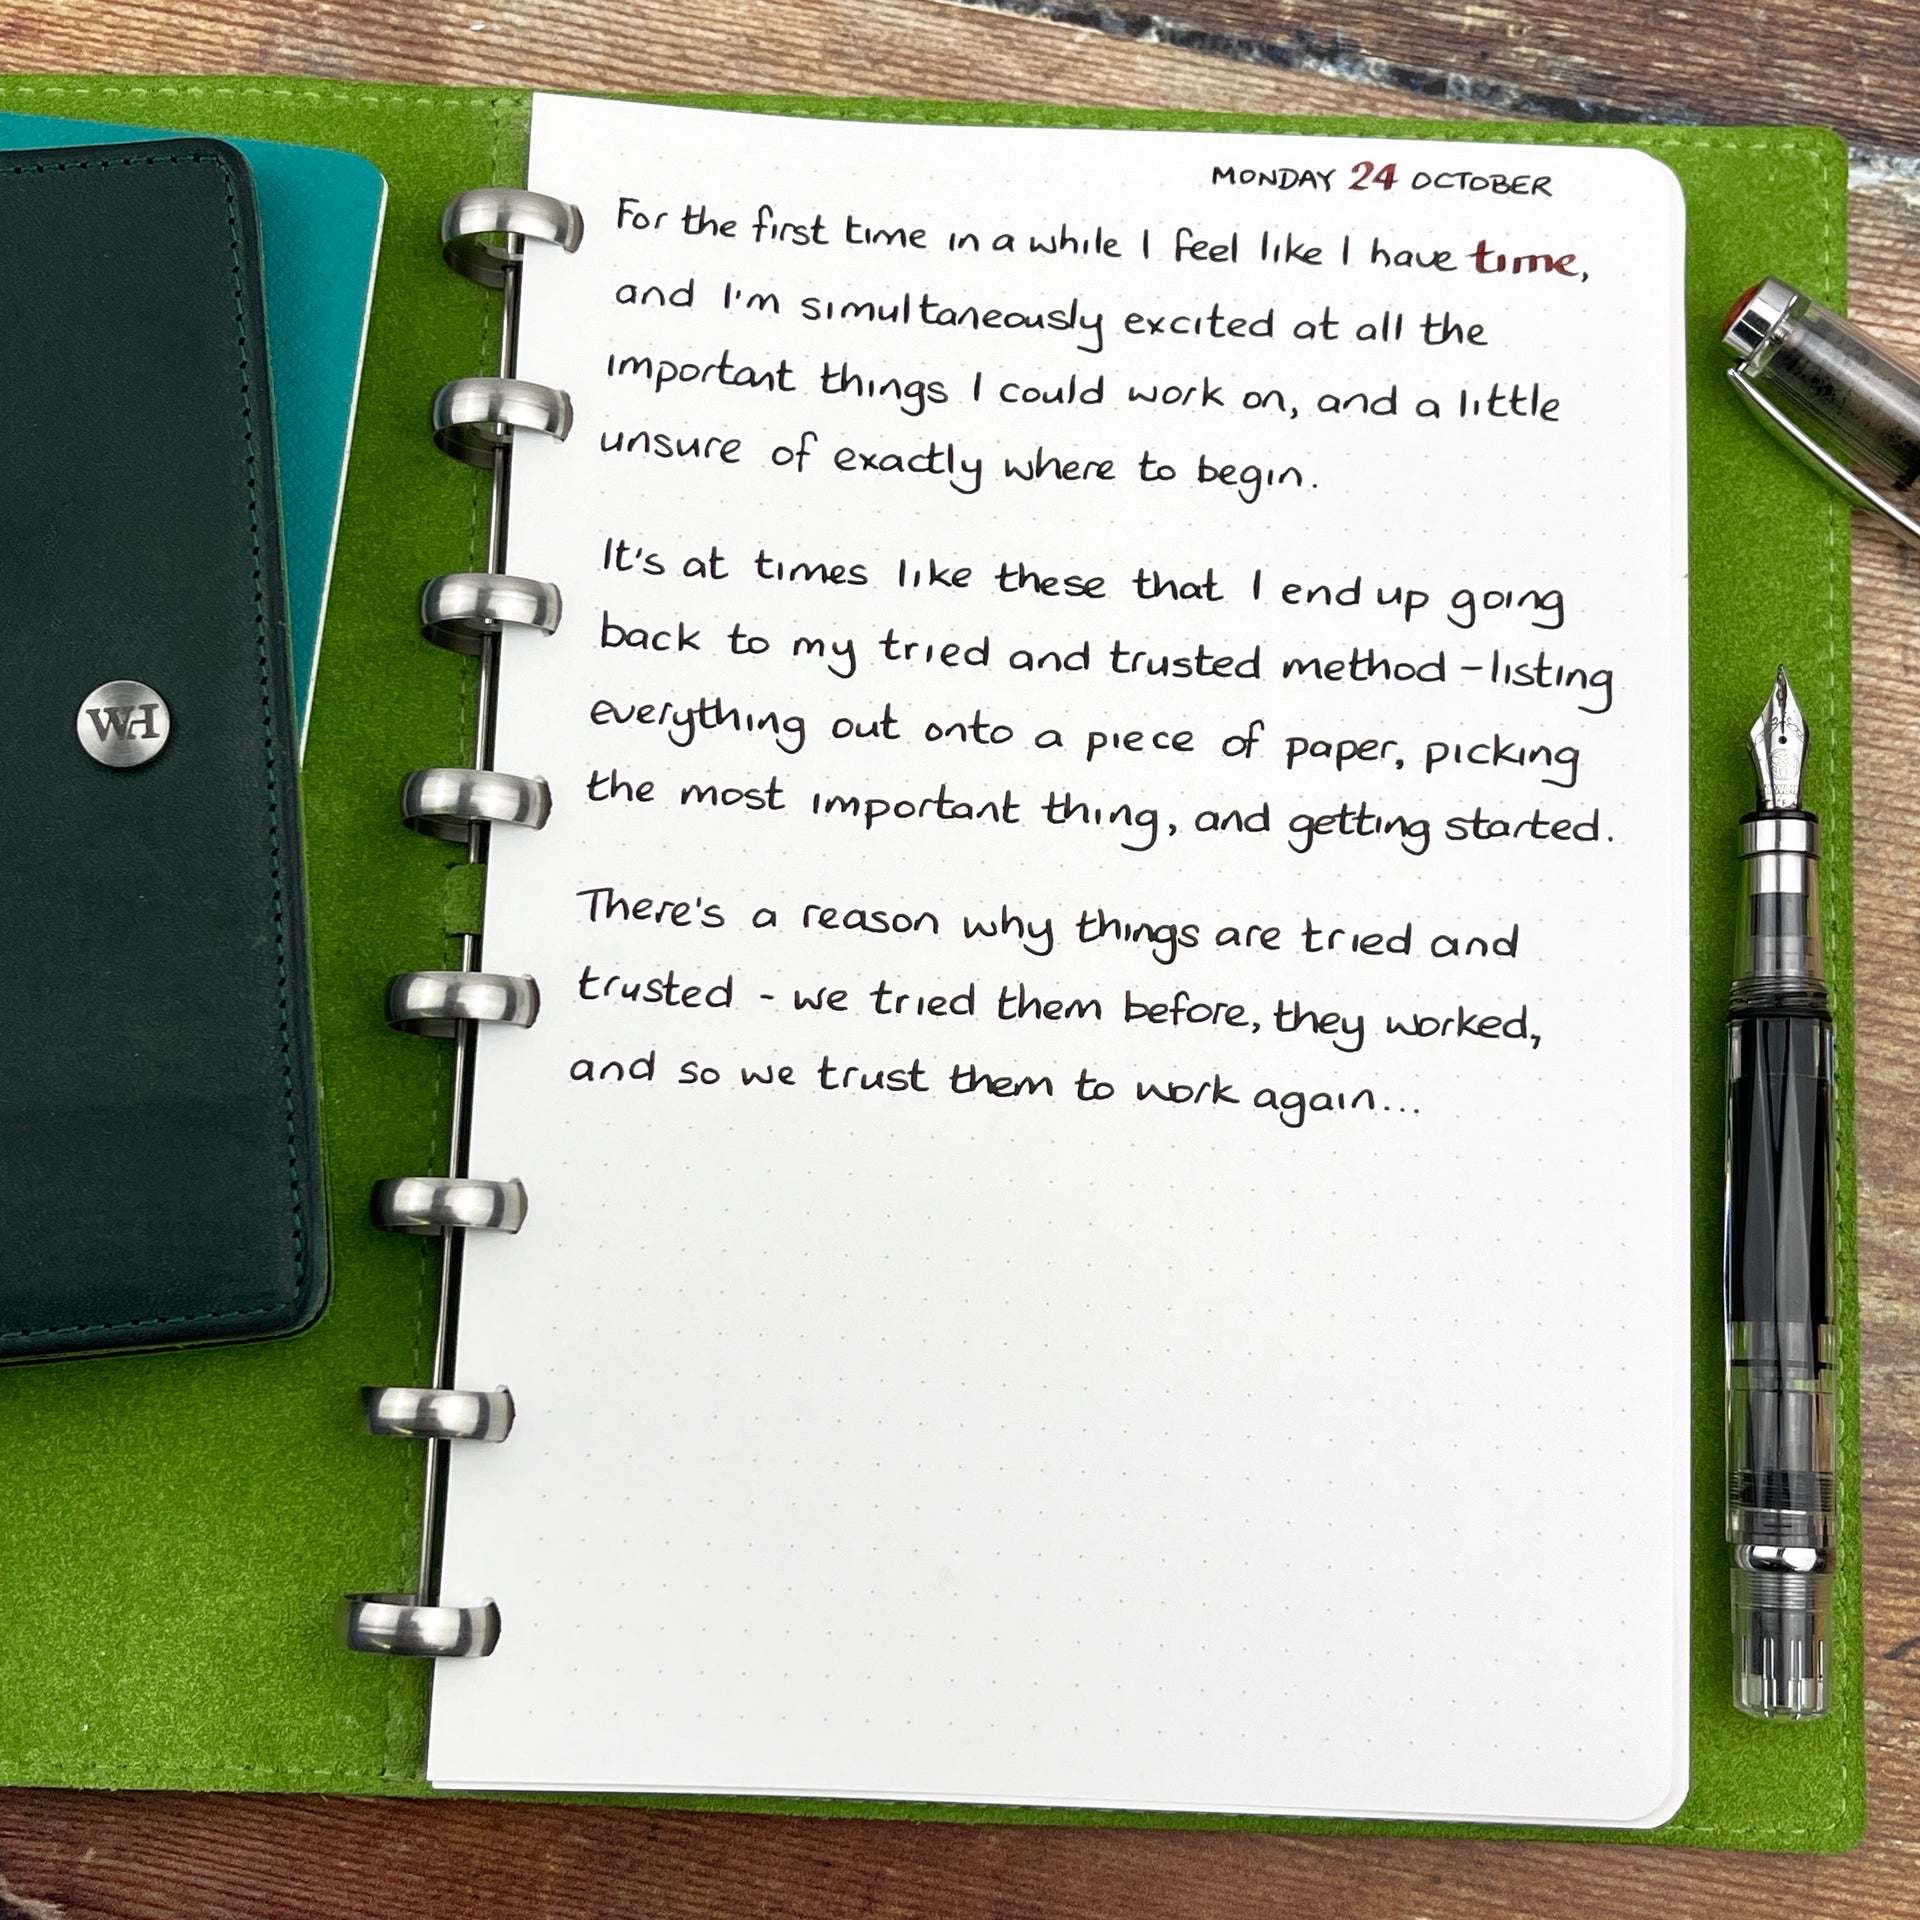 MONDAY 24 OCTOBER
For the first time in a while I feel like I have time,
and I'm simultaneously excited at all the
important things I could work on, and a little
unsure of exactly where to begin.
It's at times like these that I end up going
back to my tried and trusted method - listing
everything out onto a piece of paper, picking
the most important thing, and getting started.
There's a reason why things are tried and
trusted - we tried them before, they worked,
and so we trust them to work again...
WH